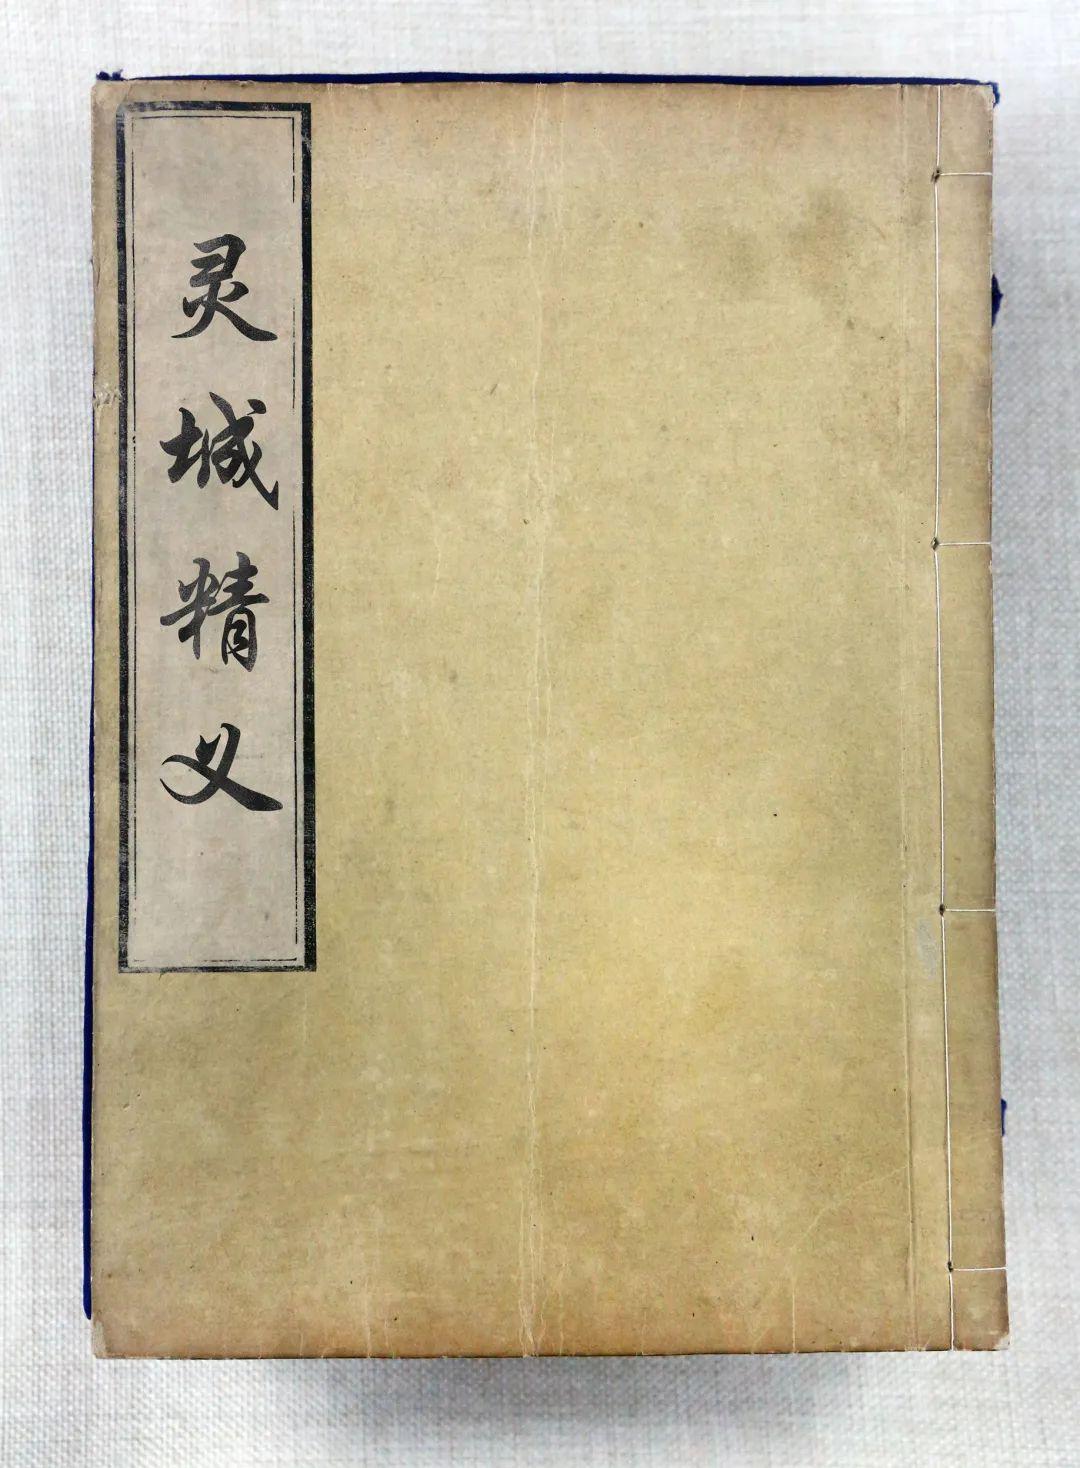 灵城精义